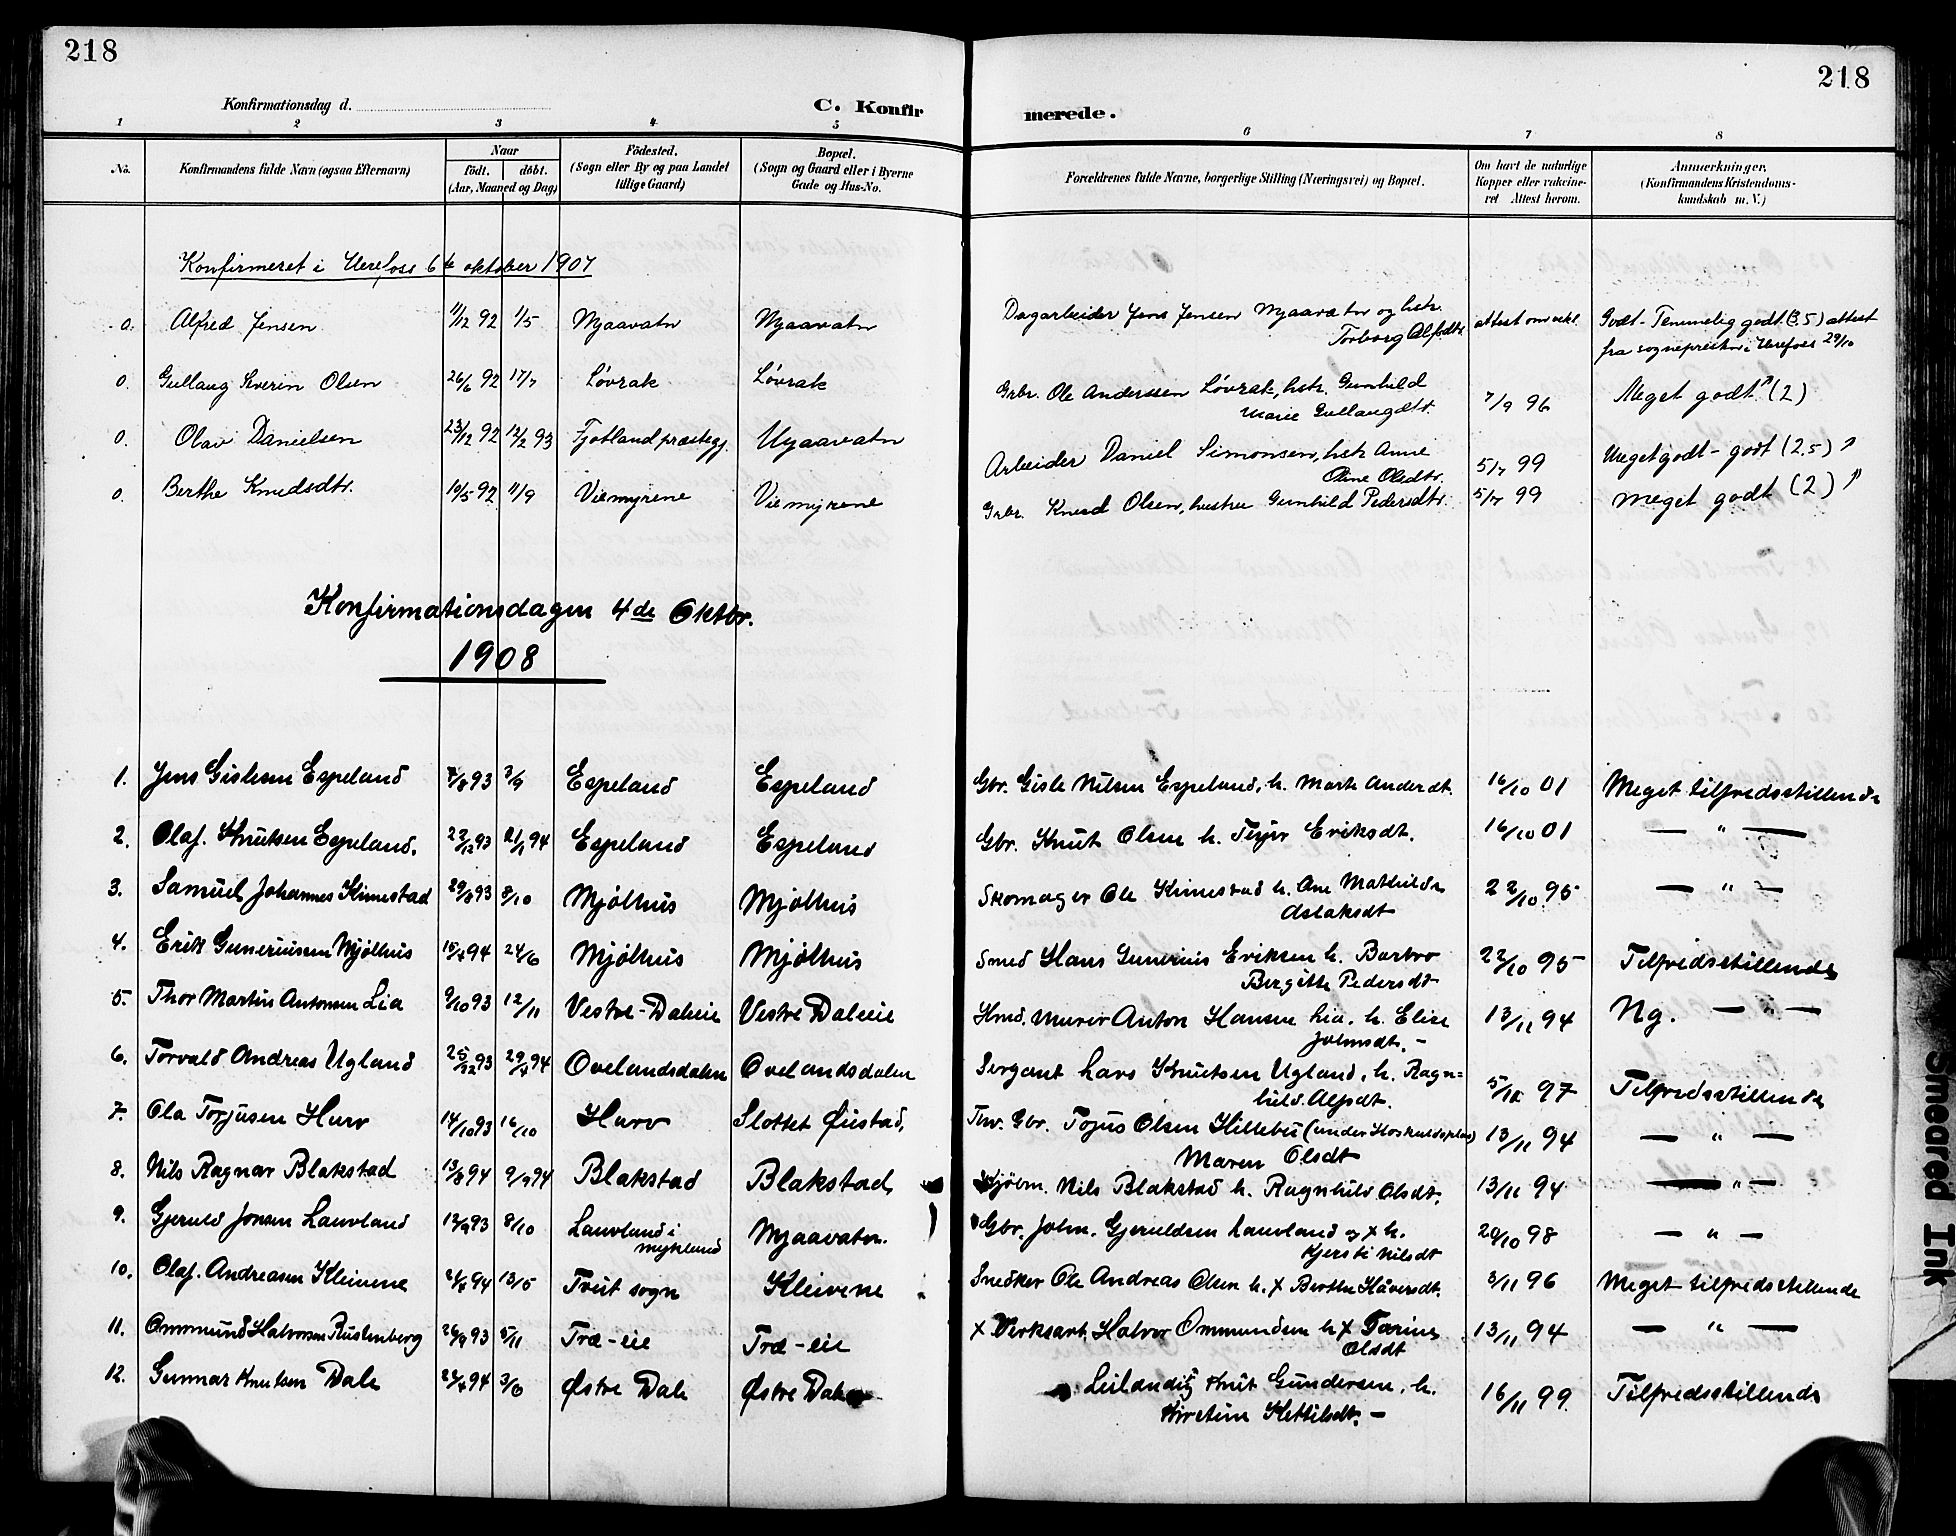 218
218
Konfirmationsdag d.
C. Konfir
merede.
1 2 3 4 5 6 7 8
No.
Konfirmandens fulde Navn (ogsaa Efternavn)
Naar
født. døbt.
(Aar, Maaned og Dag)
Fødested.
(Sogn eller By og paa Landet
tillige Gaard)
Bopæl.
(Sogn og Gaard eller i Byerne
Gade og Hus-No.
Forældrenes fulde Navne, borgerlige Stilling (Næringsvei) og Bopæl.
Om havt de naturlige
Kopper eller vakcine-
ret Attest herom.
Anmærkninger,
(Konfirmandens Kristendoms-
kundskab m. V.)
Konfirmeret i Herefoss 6te oktober 1907
0. Alfred Jensen 11/12 92 1/5 Mjaavatn Mjaavatn Dagarbeider Jens Jensen Mjaavatn og hstr.
Torborg Alfsdtr. attest om vakc. Godt - Temmelig godt (3,5) attest
fra sognepresten i Herefoss 29/10
0. Gullaug Severin Olsen 26/6 92 17/7 Løvrak Løvrak Grbr. Ole Anderssen Løvrak, hstr. Gunhild
Marie Gullaugdtr. 7/9 96 Meget godt (2)
0. Olav Danielsen 23/12 92 12/2 93 Fjotland præstegj. Mjaavatn Arbeider Daniel Simonsen, hstr Anne
Oline Olsdtr. 5/7 99 Meget godt - godt (2,5)
0. Berthe Knudsdtr. 10/5 92 11/9 Viemyrene Viemyrene Grbr. Knud Olsen, hustru Gunhild Pedersdtr. 5/7 99 meget godt (2)
Konfirmationsdagen 4de Oktbr.
1908
1. Jens Gislesen Espeland /8 93 3/9 Espeland Espeland Gbr. Gisle Nilsen Espeland, h. Marte Andersdt. 16/10 01 Meget tilfredsstillende
2. Olaf. Knutsen Espeland. 22/12 93 21/1 94 Espeland Espeland Gbr. Knut Olsen h. Eriksdt. 16/10 01 — " —
3. Samuel Johannes Kimestad 29/8 93 8/10 Mjølhus Mjølhus Skomager Ole Kimestad h. Ane Mathilde
Aslaksdt 22/10 95 — " —
4. Erik Guneriussen Mjølhus 15/4 94 24/6 Mjølhus Mjølhus Smed Hans Gunerius Eriksen h. Barbro
Bergitte Pedersdt 22/10 95 Tilfredsstillende
5. Thor Martin Antonsen Lia 9/10 93 12/11 Vestre-Daleie Vestre Daleie Hmd. Murer Anton Hansen Lia. h. Elise
Johnsdt. - 13/11 94 Ng. — " —
6. Torvald Andreas Ugland 25/12 93 29/4 94 Ovelandsdalen Ovelandsdalen Sergant Lars Knutsen Ugland, h. Ragn=
hild. Alfsdt. 5/10 97 Tilfredsstillende
7. Ola Torjusen Hurv 14/10 93 16/10 Hurv Slottet Øiestad, Gbr. Tojus Olsen Hillebu (under Hoskuldsplas)
Maren Olsdt 13/11 94 — " —
8. Nils Ragnar Blakstad 13/8 94 9/9 94 Blakstad Blakstad Kjøbm. Nils Blakstad h. Ragnhild Olsdt. 13/11 94 — " —
9. Gjeruld Jonsen Lauvland 12/9 93 8/10 Lauvland i
mykland Mjaavatn. Gbr. John. Gjeruldsen Lauvland og + h.
Kjersti Nilsdt 20/10 98 — " —
10. Olaf. Andreasen Kleivene 2/4 94 13/5 Tveit sogn Kleivene Snedker Ole Andreas Olsen h. + Berthe Håversdt. 3/11 96 Meget tilfredsstillende
11. Ommund Halvorsen Rustenberg 26/9 93 5/11 Træ-eie Træ-eie + Verksarb. Halvor Ommundsen h + Tarine
Olsdt 13/11 94 — " —
12. Gunnar Knutsen Dale 24/4 94 3/6 Østre Dale Østre Dale Leilænding Knut Gundersen, h.
Kirstine Kettilsdt. - 16/11 99. Tilfredsstillende
Smeared Ink